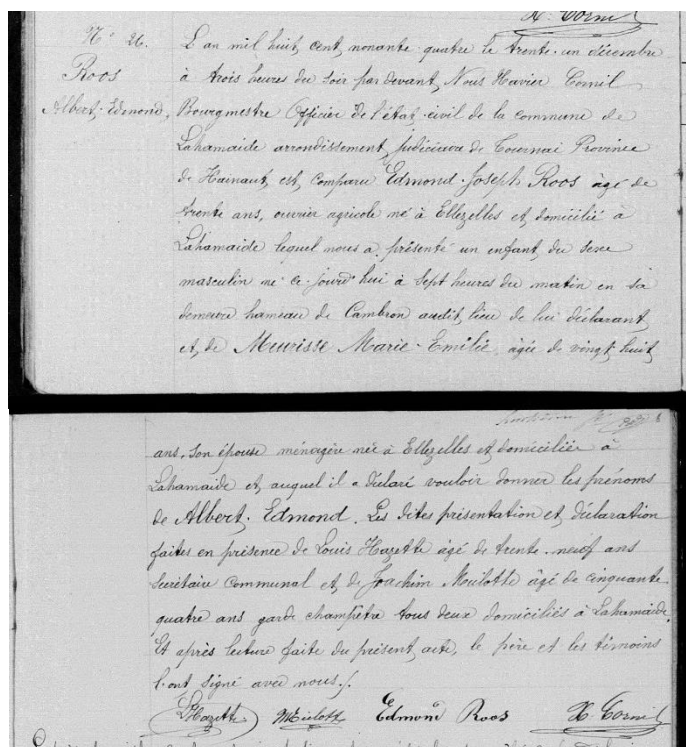 X. Cornil
N° 26.
Roos
Albert, Edmond,
L'an mil huit cent nonante quatre le trente-un décembre
à trois heures du soir par devant Nous Xavier Cornil
Bourgmestre Officier de l'état-civil de la commune de
Lahamaide arrondissement judiciaire de Tournai Province
de Hainaut, est comparu Edmond-Joseph Roos âgé de
trente ans, ouvrier agricole né à Ellezelles et domicilié à
Lahamaide lequel nous a présenté un enfant du sexe
masculin né ce-jourd'hui à sept heures du matin en sa
demeure hameau de Cambron audit lieu de lui déclarant
et de Meurisse Marie-Emilie âgée de vingt huit
ans, son épouse ménagère née à Ellezelles et domiciliée à
Lahamaide et auquel il a déclaré vouloir donner les prénoms
de Albert. Edmond. Les dites présentation et déclaration
faites en présence de Louis Hazette âgé de trente-neuf ans
secrétaire communal et de Joachim Mulotte âgé de cinquante
quatre ans garde champêtre tous deux domiciliés à Lahamaide.
Et après lecture faite du présent acte, le père et les témoins
l'ont signé avec nous./.
LHazette Edmond Roos X. Cornil